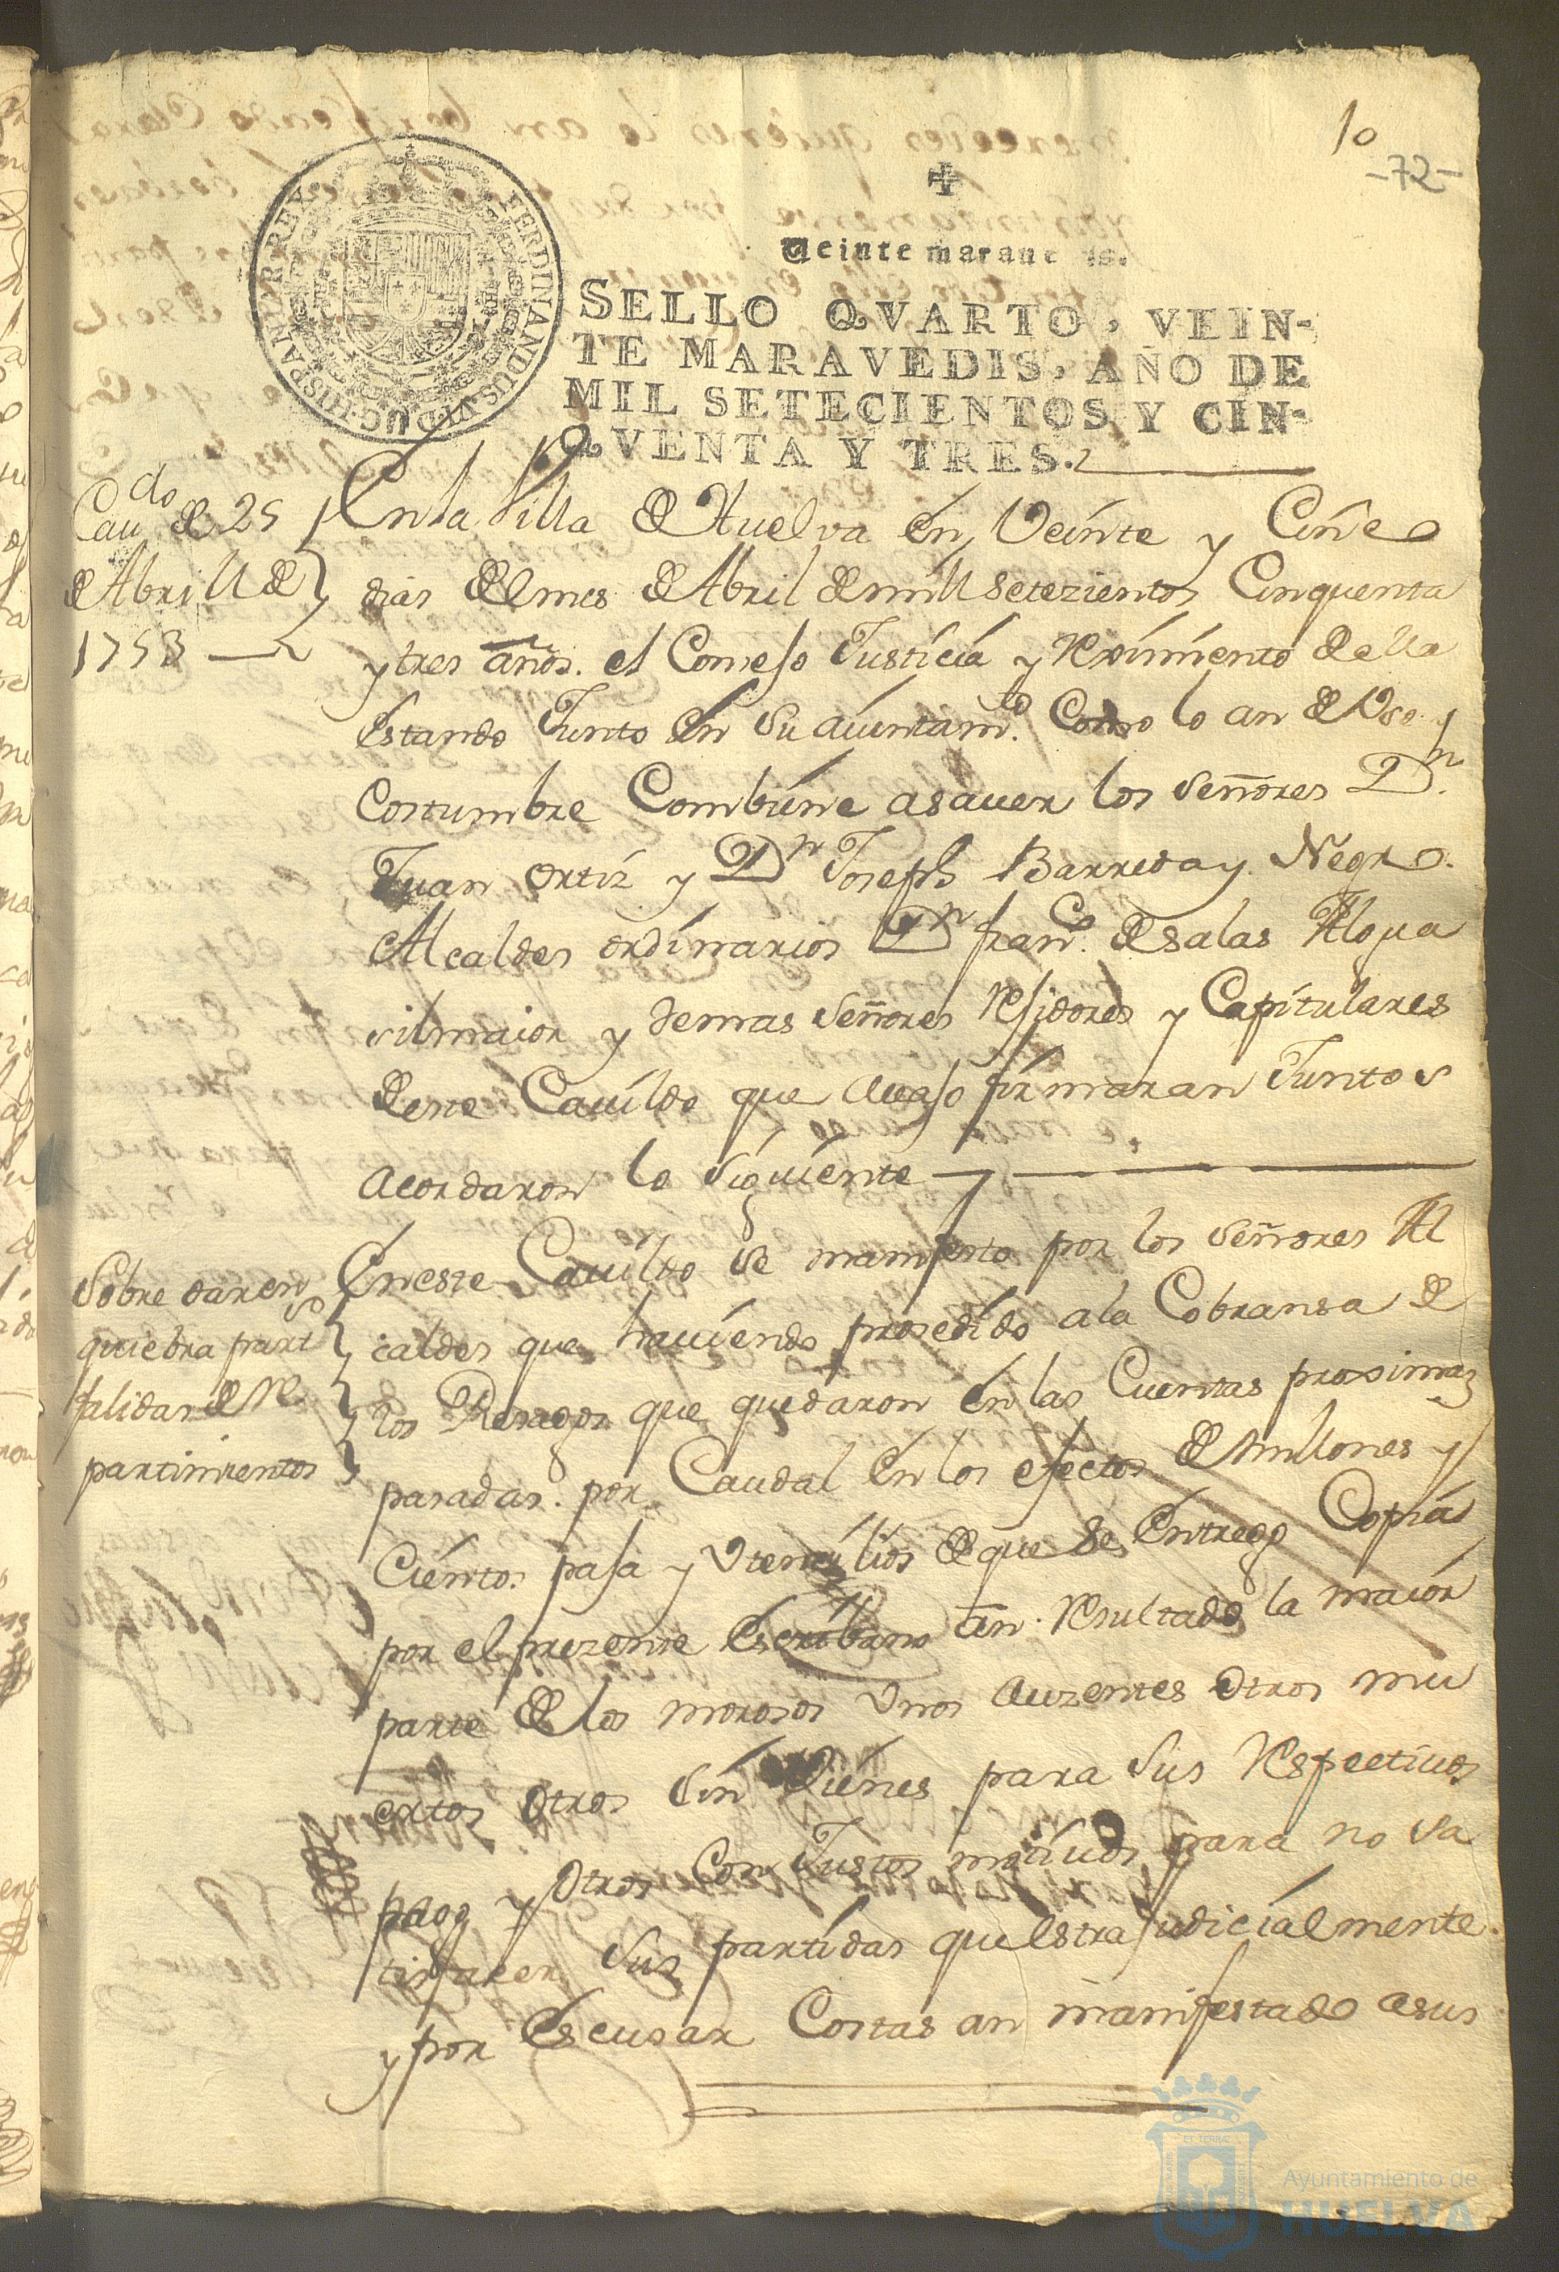 10
-72-
FERDINANDUS VI D.G. HISPANIAR REX
Veinte maraue is.
SELLO QVARTO, VEIN-
TE MARAVEDIS, AÑO DE
MIL SETECIENTOS Y CIN-
QVENTA Y TRES.
Caudo de 25
de Abrill de
1753
En la Villa de Huelva en Veinte y Cinco
dias del mes de Abril de mill setezientos Cinquenta
y tres años. el Consejo Justicia y Reximiento de ella
estando Junto en su aiuntamto. Como lo an de Vso y
Costumbre Combiene asauer los señores Dn.
Juan Ortiz y Dn Joseph Barreda y Negro.
Alcaldes ordinarios Dn franco. de salas Algua
silmaior y demas señores Rejidores y Capitulares
deste Cauildo que auajo firmaran Juntos
acordaron lo siguiente
Sobre dar en
quiebra part
falidas de Re
partimientos
En este Cauildo se manifesto por los señores Al
caldes que hauiendo prosedido a la Cobransa de
los Resagos que quedaron en las Cuentas proximas
pasadas. por Caudal en los efectos de millones y
Cientos. paja y Vtensilios de que se entrego Copia
por el prezente Escribano an Resultado la maior
parte de los morosos Vnos auzentes otros mu
ertos otros sin Vienes para sus Respectiuos
pagos y otros Con Justos motiuos para no sa
tisfacer sus partidas que estrajudicialmente.
y por escusar Costas an manifestado a sus
Ayuntamiento de
HUELVA